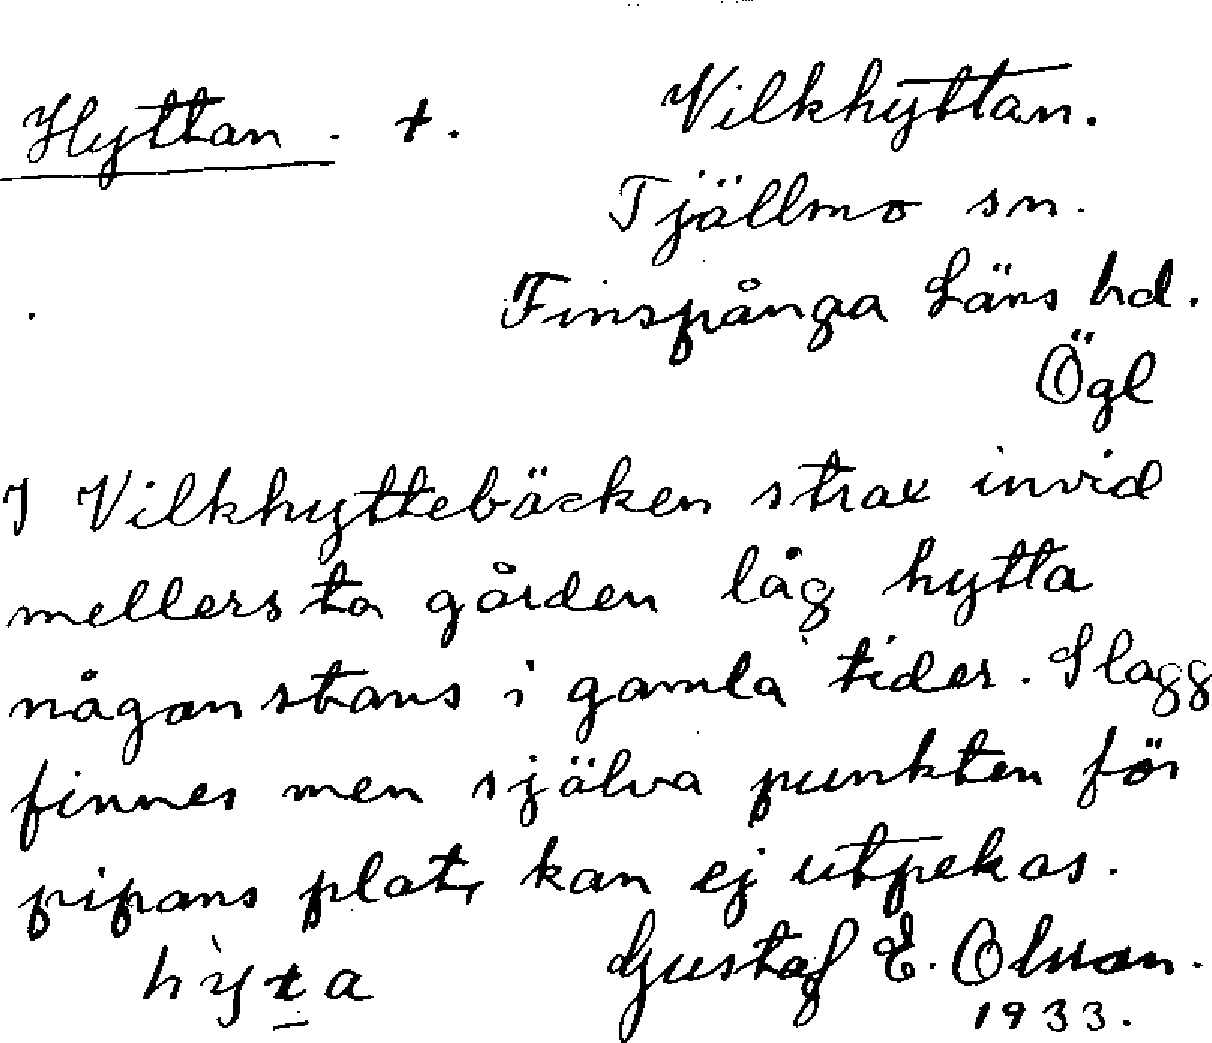 Hyttan. +. Vilkhyttan.
Tjällmo sn.
Finspånga Läns hd.
Ögl
I Vilkhyttebäcken strax invid
mellersta gården låg hytta
någonstans i gamla tider. Slagg
finnes men själva punkten för
pipans plats kan ej utpekas.
hỳta Gustaf E. Olsson.
1933.